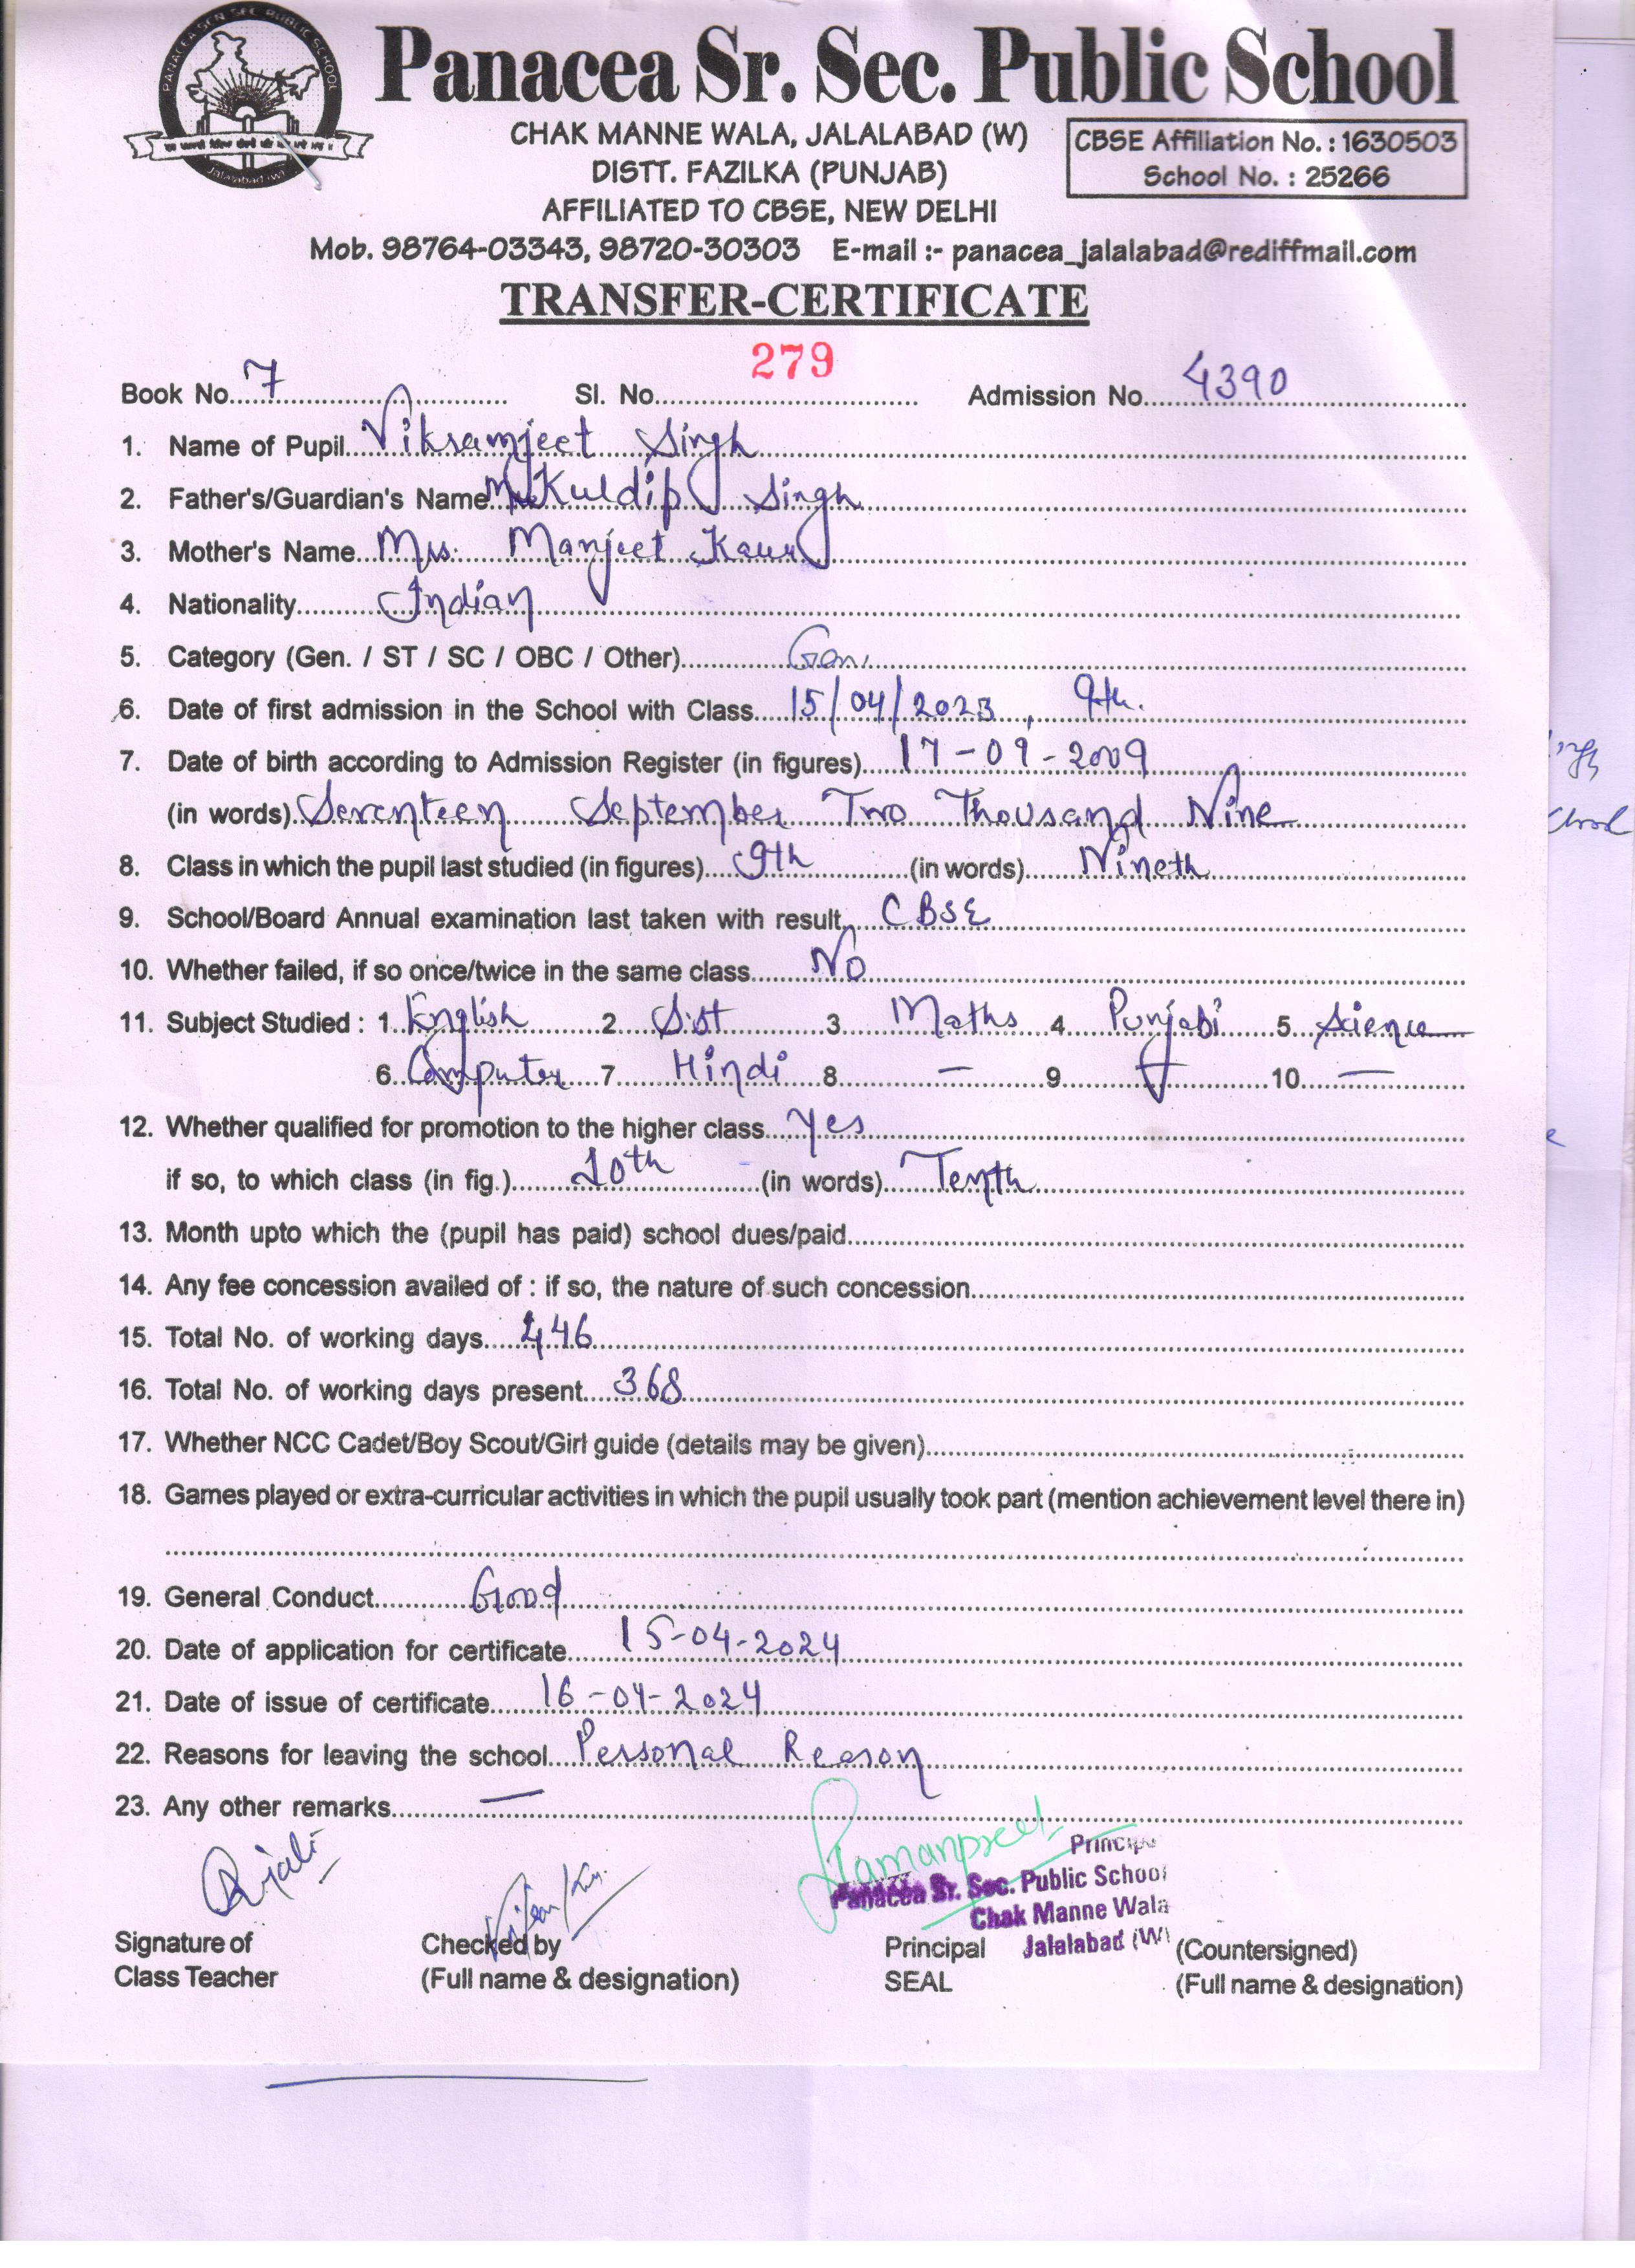 PANACEA SEN SEC PUBLIC SCHOOL
Jalalabad (W)
Panacea Sr. Sec. Public School
CHAK MANNE WALA, JALALABAD (W)
DISTT. FAZILKA (PUNJAB)
AFFILIATED TO CBSE, NEW DELHI
CBSE Affiliation No. : 1630503
School No. : 25266
Mob. 98764-03343, 98720-30303 E-mail :- panacea_jalalabad@rediffmail.com
TRANSFER-CERTIFICATE
Book No. 7 Sl. No. 279 Admission No. 4390
1. Name of Pupil Viksamjeet Singh
2. Father's/Guardian's Name Mr. Kuldip Singh
3. Mother's Name Mrs. Manjeet Kaur
4. Nationality Indian
5. Category (Gen. / ST / SC / OBC / Other) Gen.
6. Date of first admission in the School with Class 15/04/2023, 9th.
7. Date of birth according to Admission Register (in figures) 17-09-2009
(in words) Seventeen September Two Thousand Nine
8. Class in which the pupil last studied (in figures) 9th (in words) Nineth
9. School/Board Annual examination last taken with result CBSE
10. Whether failed, if so once/twice in the same class No
11. Subject Studied : 1 English 2 S.st 3 Maths 4 Punjabi 5 Science
6 Computer 7 Hindi 8 — 9 — 10 —
12. Whether qualified for promotion to the higher class Yes
if so, to which class (in fig.) 10th (in words) Tenth
13. Month upto which the (pupil has paid) school dues/paid
14. Any fee concession availed of : if so, the nature of such concession
15. Total No. of working days 446
16. Total No. of working days present 368
17. Whether NCC Cadet/Boy Scout/Girl guide (details may be given)
18. Games played or extra-curricular activities in which the pupil usually took part (mention achievement level there in)
19. General Conduct Good
20. Date of application for certificate 15-04-2024
21. Date of issue of certificate 16-04-2024
22. Reasons for leaving the school Personal Reason
23. Any other remarks —
Ramanpreet
Principal
Panacea Sr. Sec. Public School
Chak Manne Wala
Jalalabad (W)
Signature of Class Teacher
Checked by (Full name & designation)
Principal SEAL
(Countersigned) (Full name & designation)